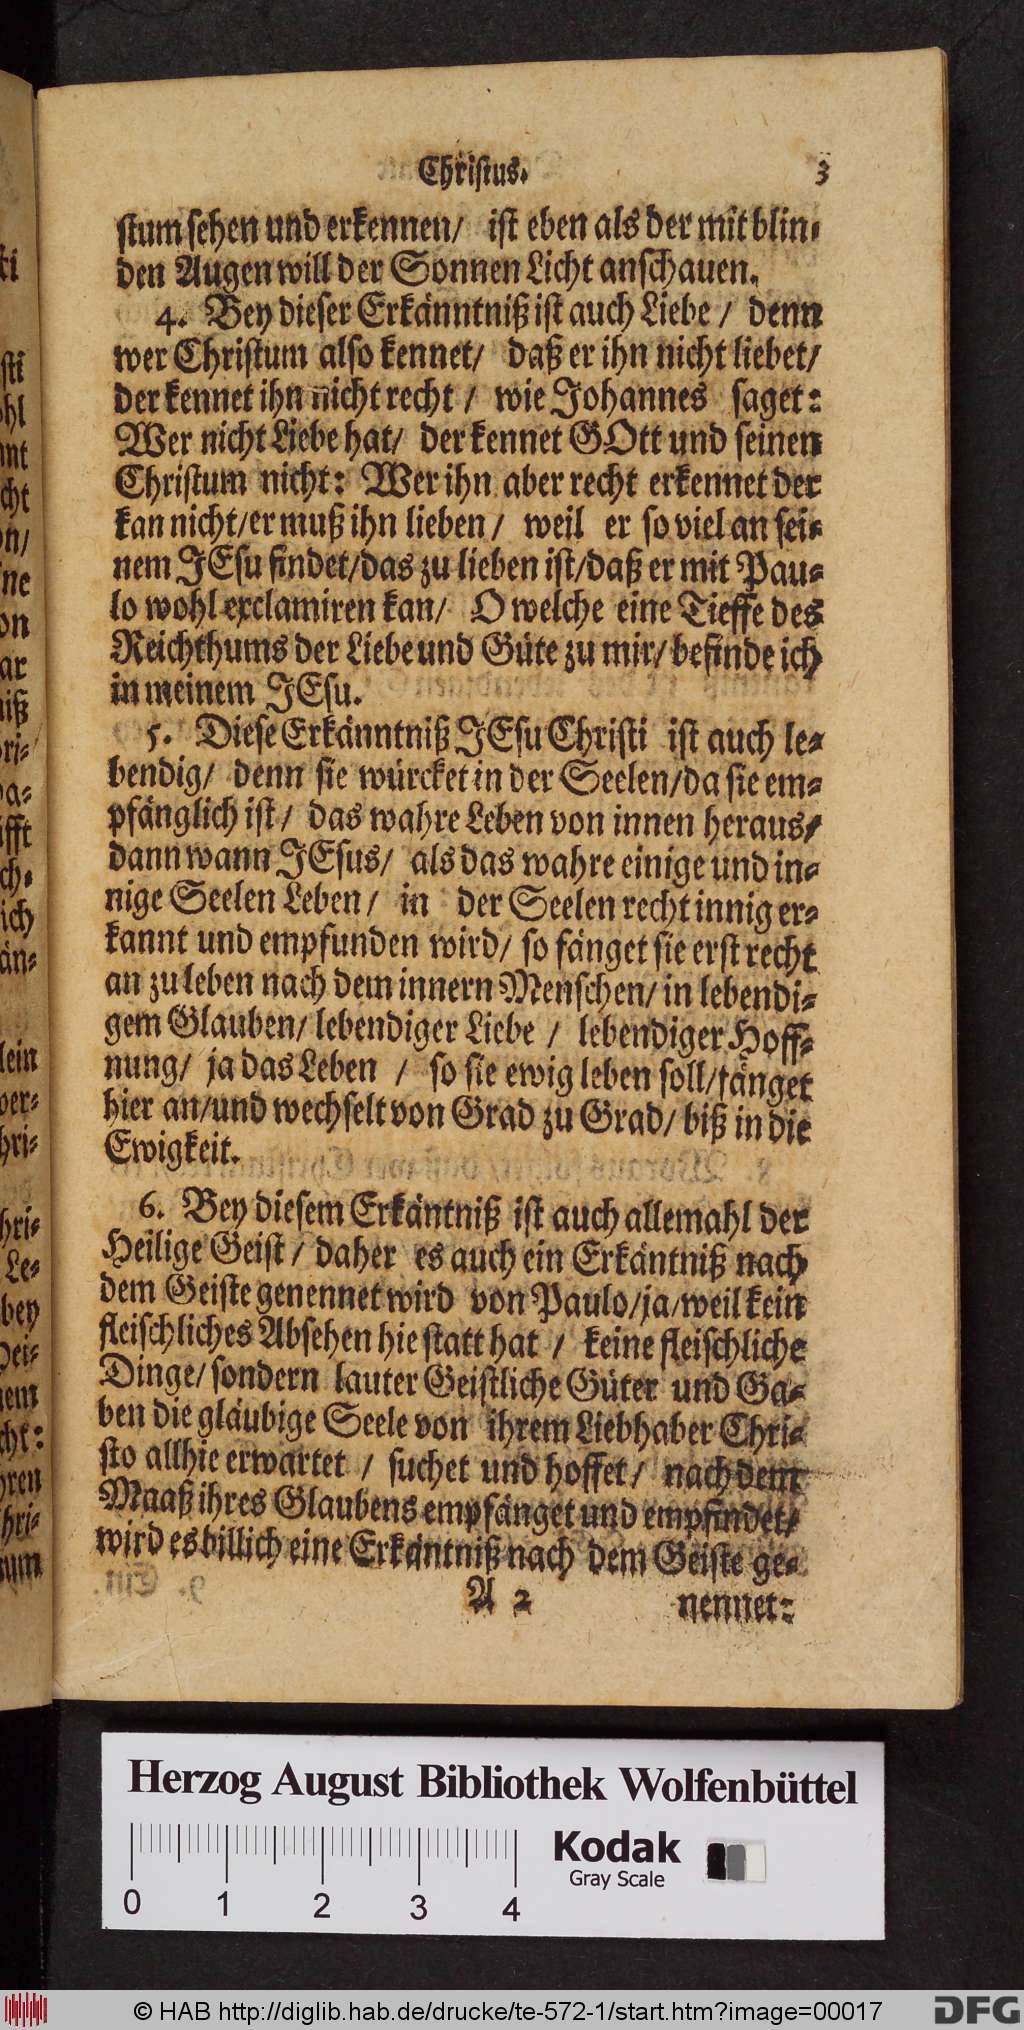 Christus. 3
stum sehen und erkennen/ ist eben als der mit blin-
den Augen will der Sonnen Licht anschauen.
4. Bey dieser Erkänntniß ist auch Liebe / denn
wer Christum also kennet/ daß er ihn nicht liebet/
der kennet ihn nicht recht / wie Johannes saget:
Wer nicht Liebe hat/ der kennet GOtt und seinen
Christum nicht: Wer ihn aber recht erkennet der
kan nicht/er muß ihn lieben / weil er so viel an sei-
nem JEsu findet/das zu lieben ist/daß er mit Pau-
lo wohl exclamiren kan/ O welche eine Tieffe des
Reichthums der Liebe und Güte zu mir/ befinde ich
in meinem JEsu.
5. Diese Erkänntniß JEsu Christi ist auch le-
bendig/ denn sie würcket in der Seelen/da sie em-
pfänglich ist / das wahre Leben von innen heraus/
dann wann JEsus/ als das wahre einige und in-
nige Seelen Leben / in der Seelen recht innig er-
kannt und empfunden wird/ so fänget sie erst recht
an zu leben nach dem innern Menschen/ in lebendi-
gem Glauben/ lebendiger Liebe / lebendiger Hoff-
nung/ ja das Leben / so sie ewig leben soll/fänget
hier an/und wechselt von Grad zu Grad/ biß in die
Ewigkeit.
6. Bey diesem Erkäntniß ist auch allemahl der
Heilige Geist / daher es auch ein Erkäntniß nach
dem Geiste genennet wird von Paulo/ja/weil kein
fleischliches Absehen hie statt hat / keine fleischliche
Dinge/ sondern lauter Geistliche Güter und Ga-
ben die gläubige Seele von ihrem Liebhaber Chri-
sto allhie erwartet / suchet und hoffet/ nach dem
Maaß ihres Glaubens empfänget und empfindet/
wird es billich eine Erkäntniß nach dem Geiste ge-
A 2 nennet:
Herzog August Bibliothek Wolfenbüttel
Kodak
Gray Scale
0 1 2 3 4
© HAB http://diglib.hab.de/drucke/te-572-1/start.htm?image=00017
DFG